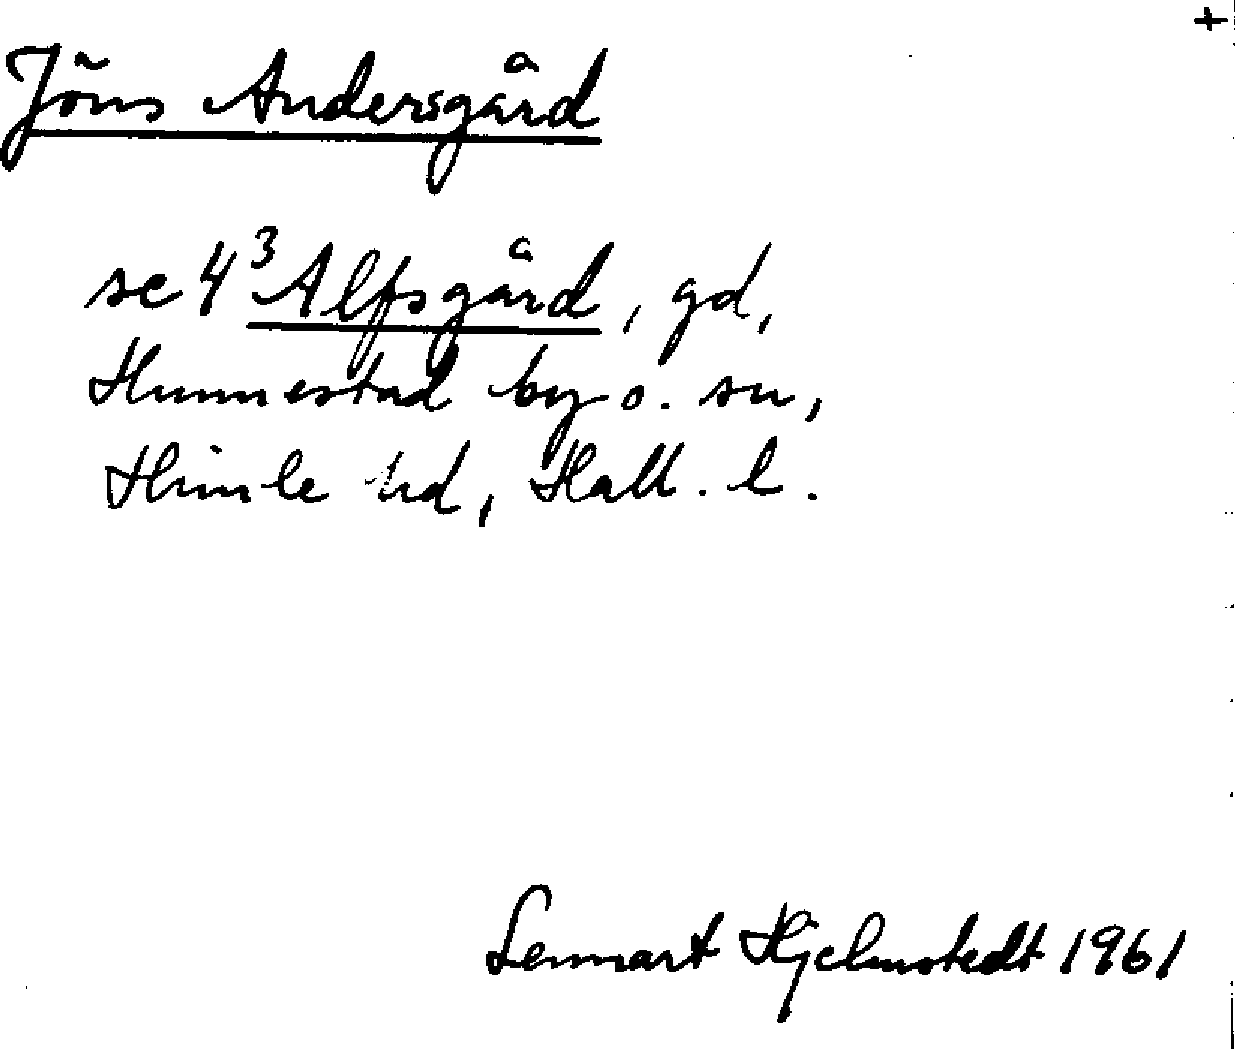 +
Jöns Andersgård
se 4³ Alfsgård, gd,
Hunnestad by o. sn,
Himle hd, Hall. l.
Lennart Hjelmstedt 1961